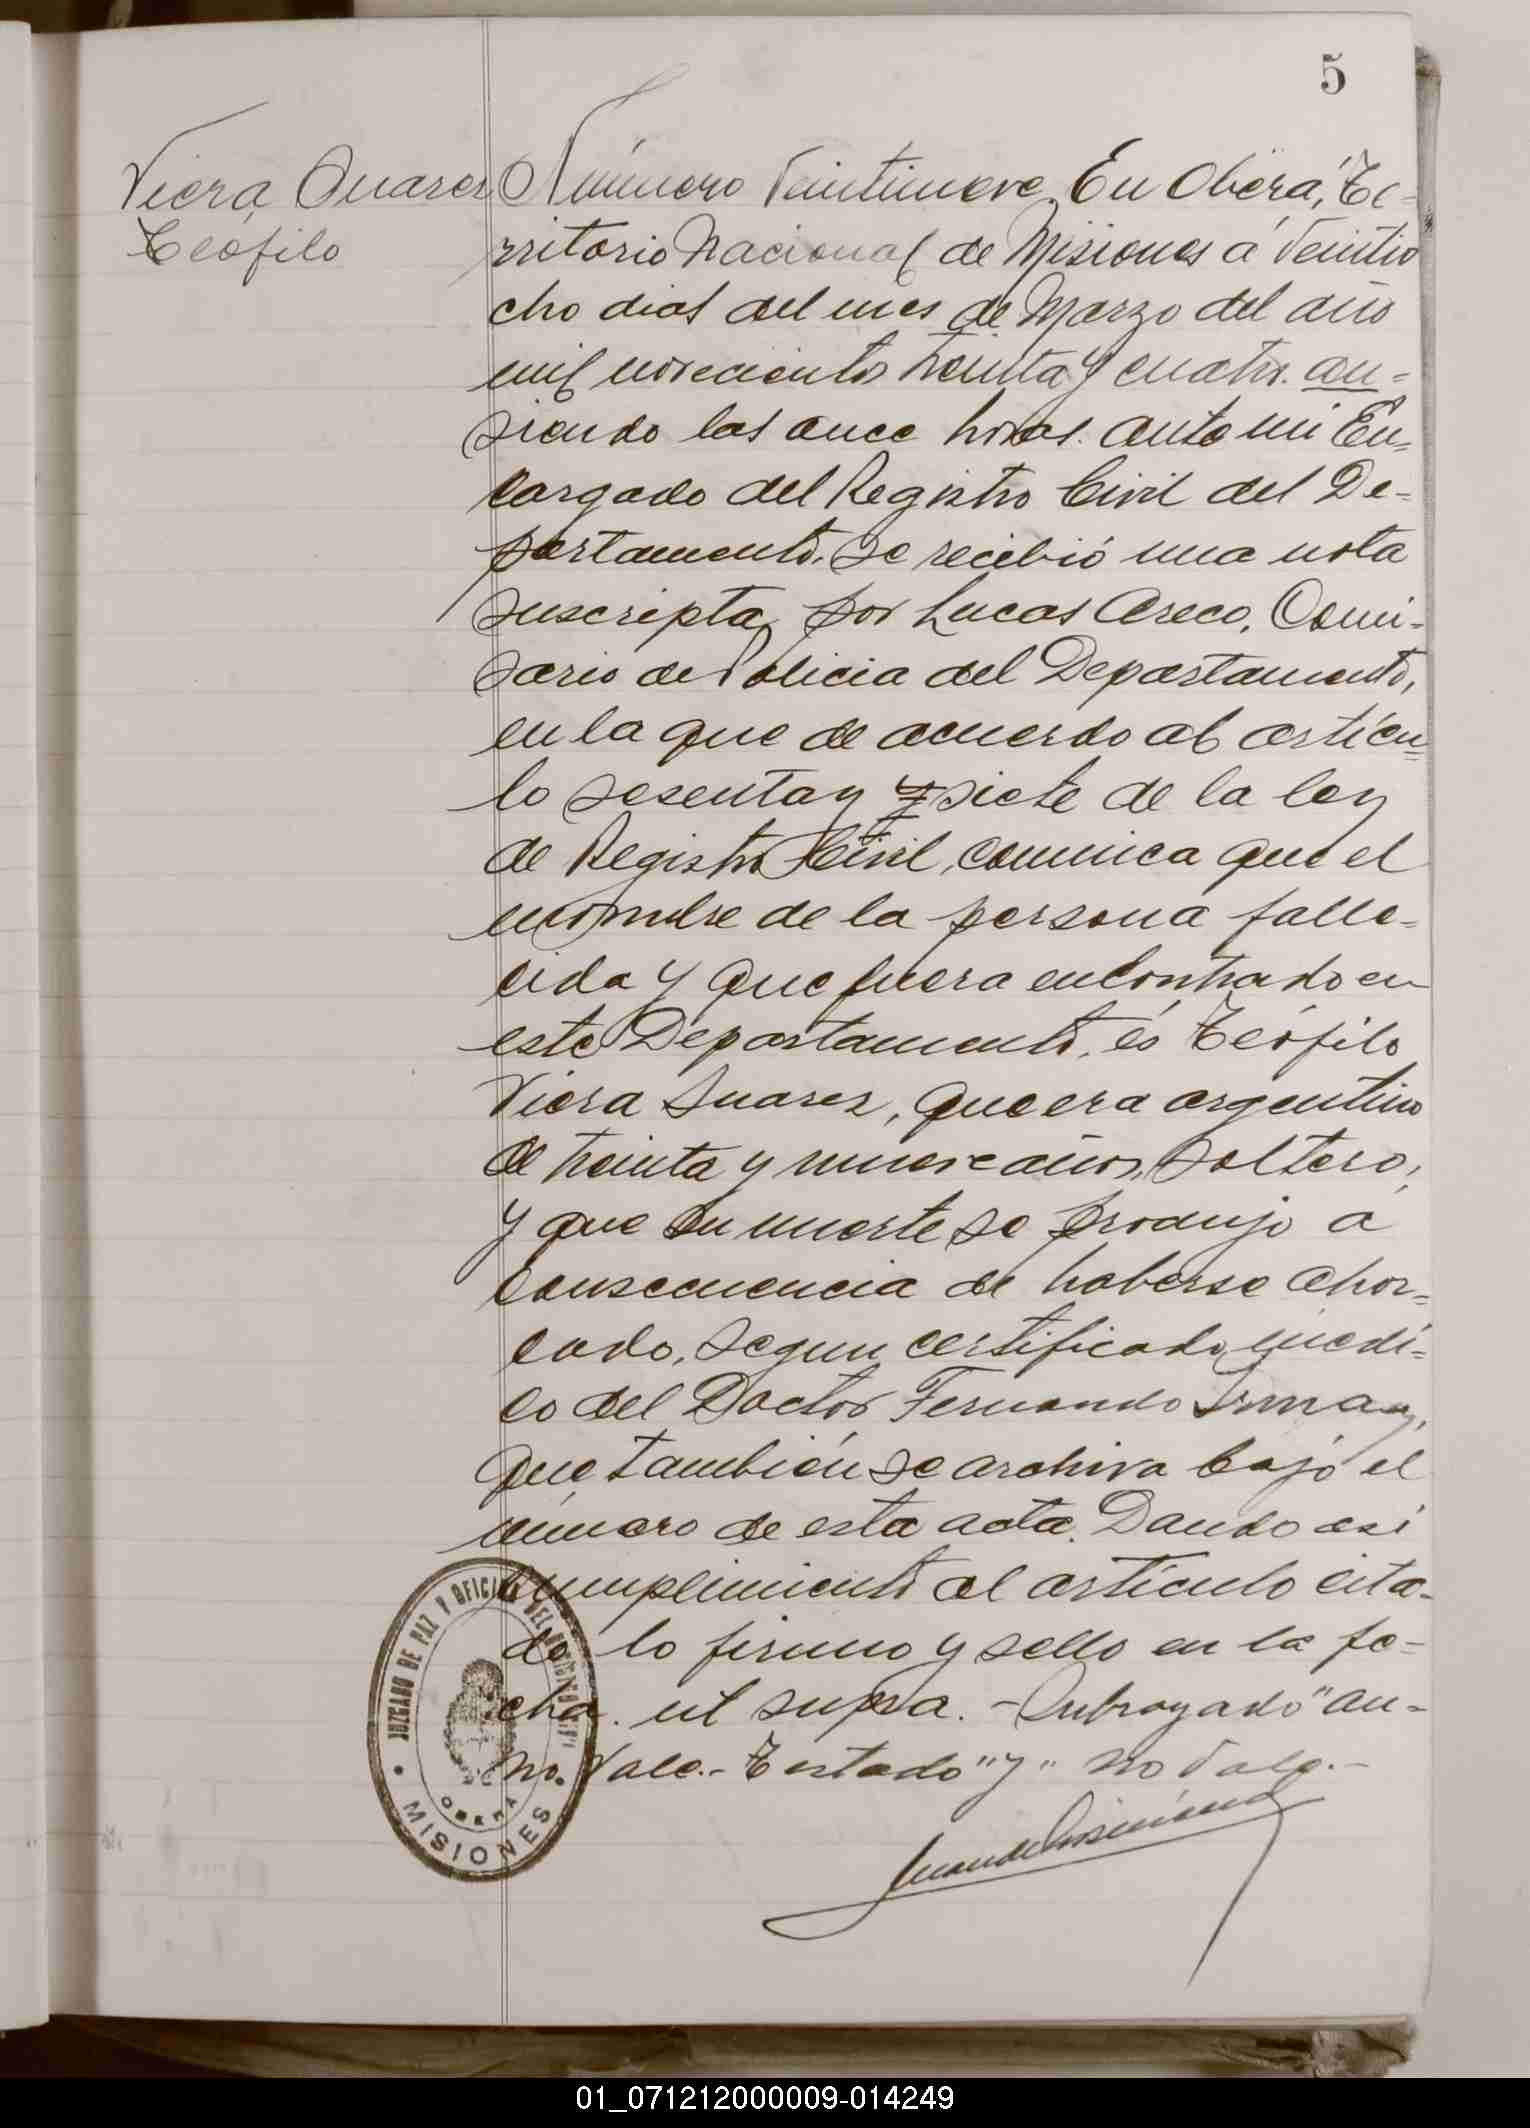 5
Viera Suares
Teófilo
Número Veintinueve. En Oberá, Te-
rritorio Nacional de Misiones á Veintio
cho dias del mes de Marzo del año
mil novecientos treinta y cuatro. an-
siendo las once horas. ante mi En-
cargado del Registro Civil del De-
partamento. Se recibió una nota
suscripta por Lucas Areco, Comi-
sario de Policia del Departamento,
en la que de acuerdo al artícu=
lo sesenta y y siete de la ley
de Registro Civil, comunica que el
nombre de la persona falle-
cida y que fuera encontrado en
este Departamento, és Teófilo
Viera Suarez, que era argentino
de treinta y nueve años, Soltero,
y que su muerte se produjo a
consecuencia de haberse ahor=
cado, segun certificado médi=
co del Doctor Fernando
que también se archiva bajo el
número de esta acta. Dando asi
cumplimiento al artículo cita-
do lo firmo y sello en la fe-
cha. ut supra. - Subrayado "an-
no. Vale.- Testado "y" no Vale.-
JUZGADO DE PAZ Y OFICINA DEL REGISTRO CIVIL
OBERA
MISIONES
01_071212000009-014249